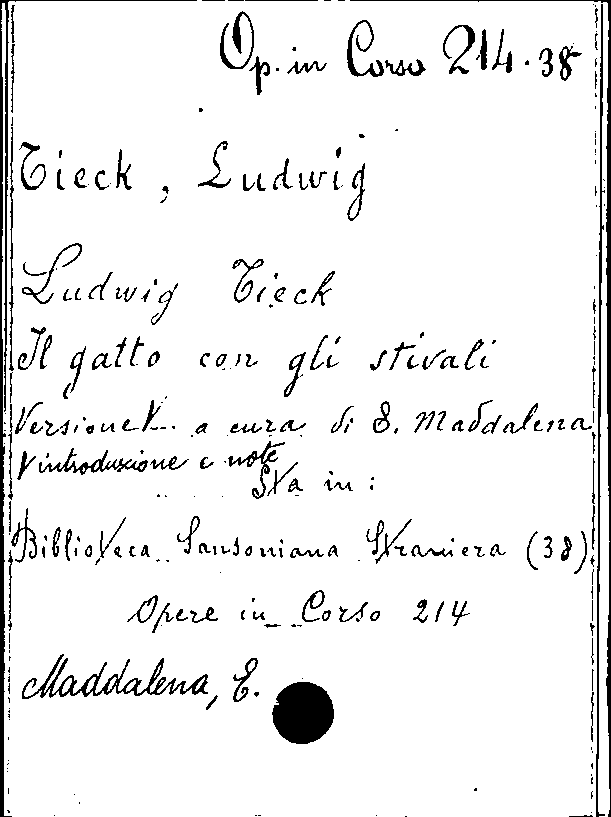 Op. in Corso 214.38
Tieck, Ludwig
Ludwig Tieck
Il gatto con gli stivali
Versione V.. a cura di E. Maddalena
V introduzione e note
Sta in:
Biblioteca Sansoniana Straniera (38)
Opere in Corso 214
Maddalena, E.